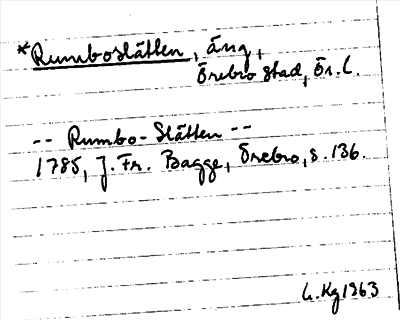 *Rumboslätten, äng,
Örebro stad, Ör. l.
-- Rumbo-Slätten --
1785, J. Fr. Bagge, Örebro, s. 136.
G. Kg 1963